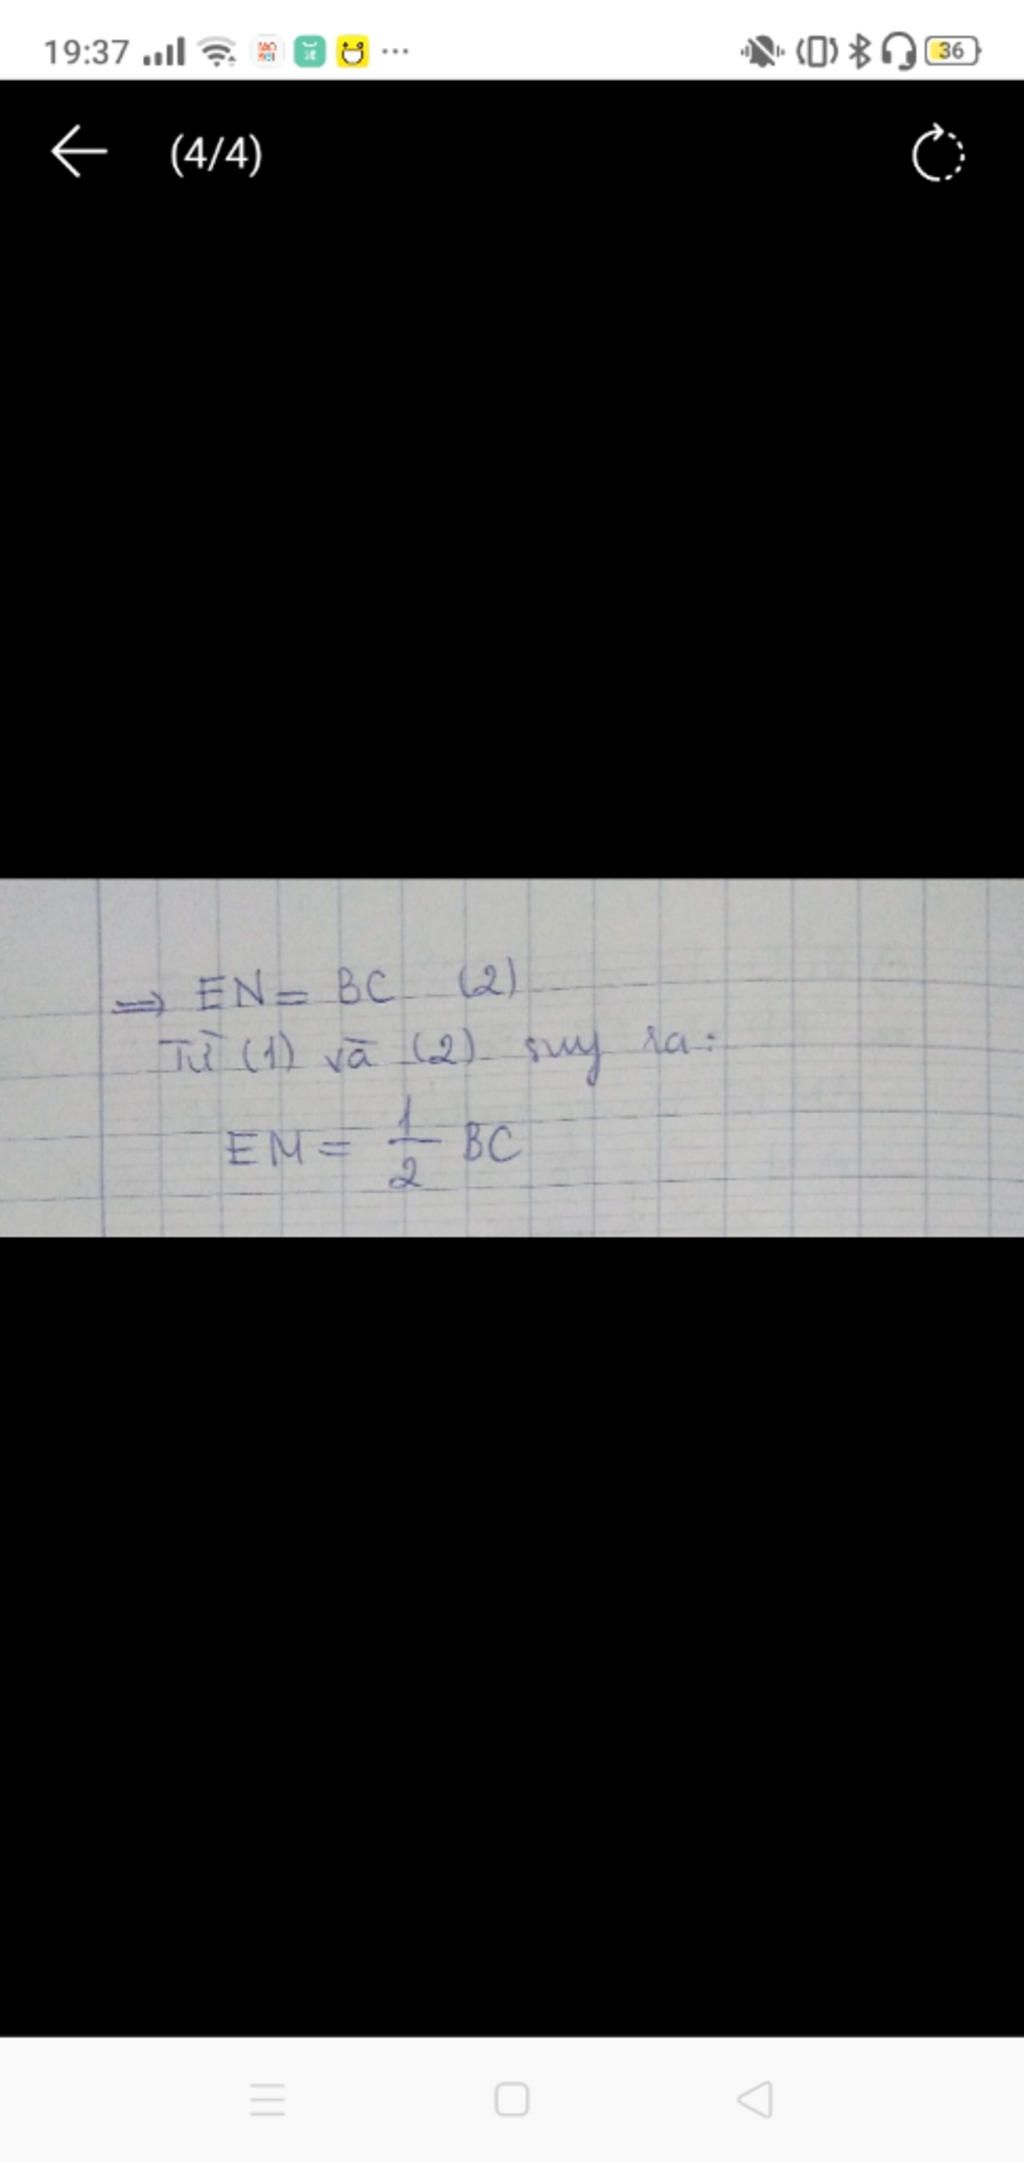 19:37
36
(4/4)
⇒ EN = BC (2)
Từ (1) và (2) suy ra:
EM = 1/2 BC